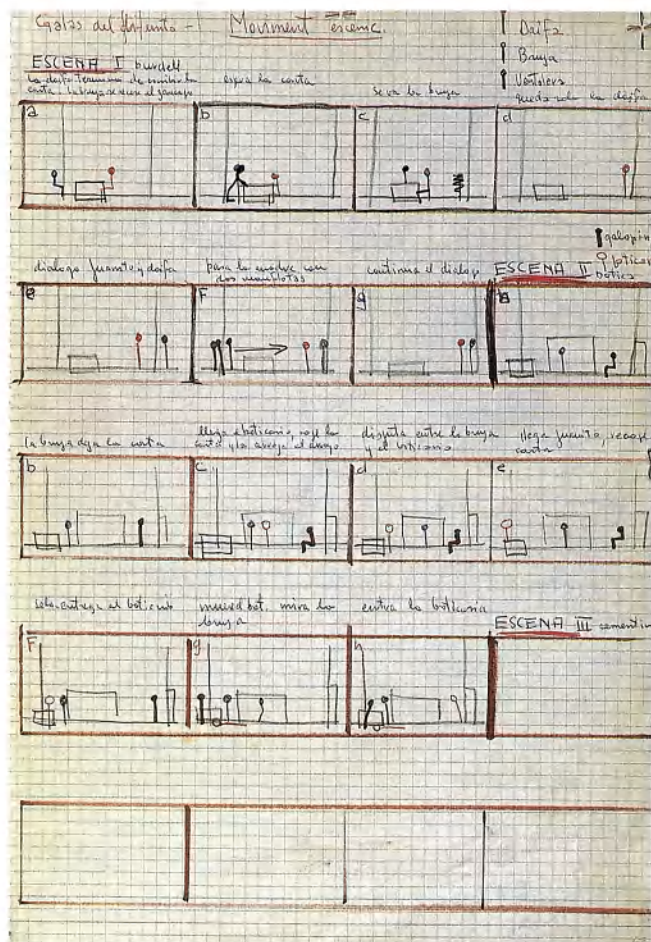 Galas del difunto - Moviment escenic.
Daifa
Bruja
Ventolera
ESCENA I burdell
la daifa termina de escribir la
carta. la bruja se
espera la carta
se va la bruja
queda sola la daifa
a b c d
galopin
boticario
dialogo juanito y daifa
pasa la madre con
dos
continua el dialogo
ESCENA II
botica
e f g a
la bruja deja la carta
llega el boticario, coge la
carta y la arroja al
disputa entre la bruja
y el boticario
llega juanito, recoge
carta
b c d e
entrega al boticario
bot. mira la
bruja
entra la boticaria
ESCENA III cementiri
f g h